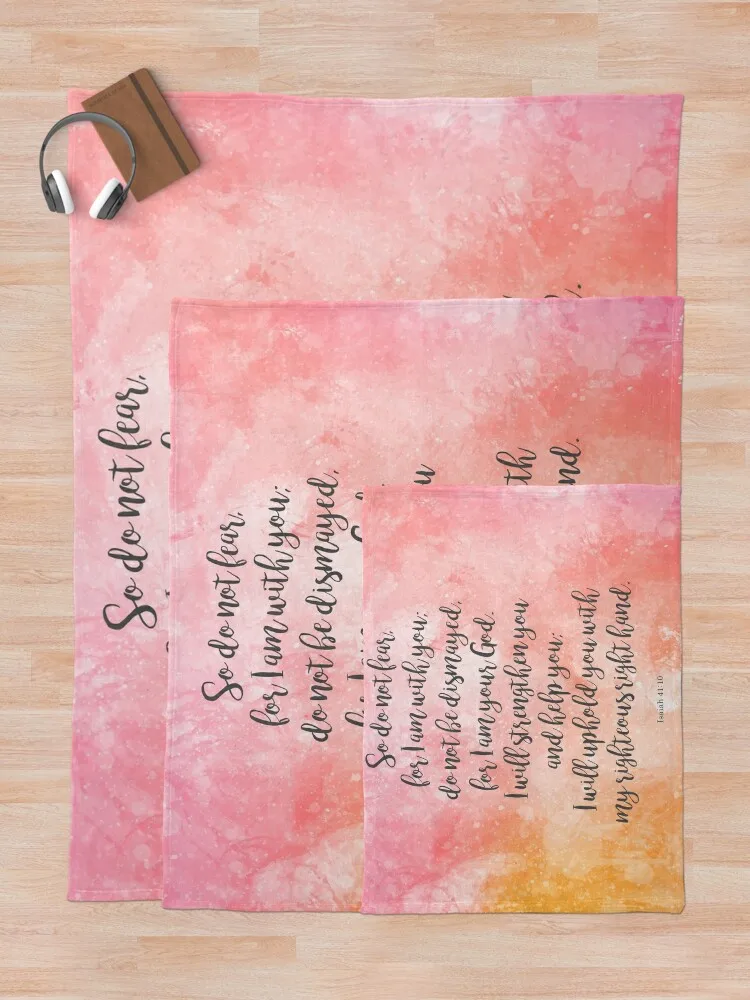 So do not fear,
So do not fear,
for I am with you;
do not be dismayed,
So do not fear,
for I am with you;
do not be dismayed,
for I am your God.
I will strengthen you
and help you;
I will uphold you with
my righteous right hand.
Isaiah 41:10